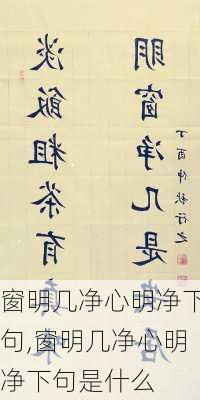 淡飯粗茶有
明窗净几是
丁酉仲秋行之
窗明几净心明净下
句,窗明几净心明
净下句是什么